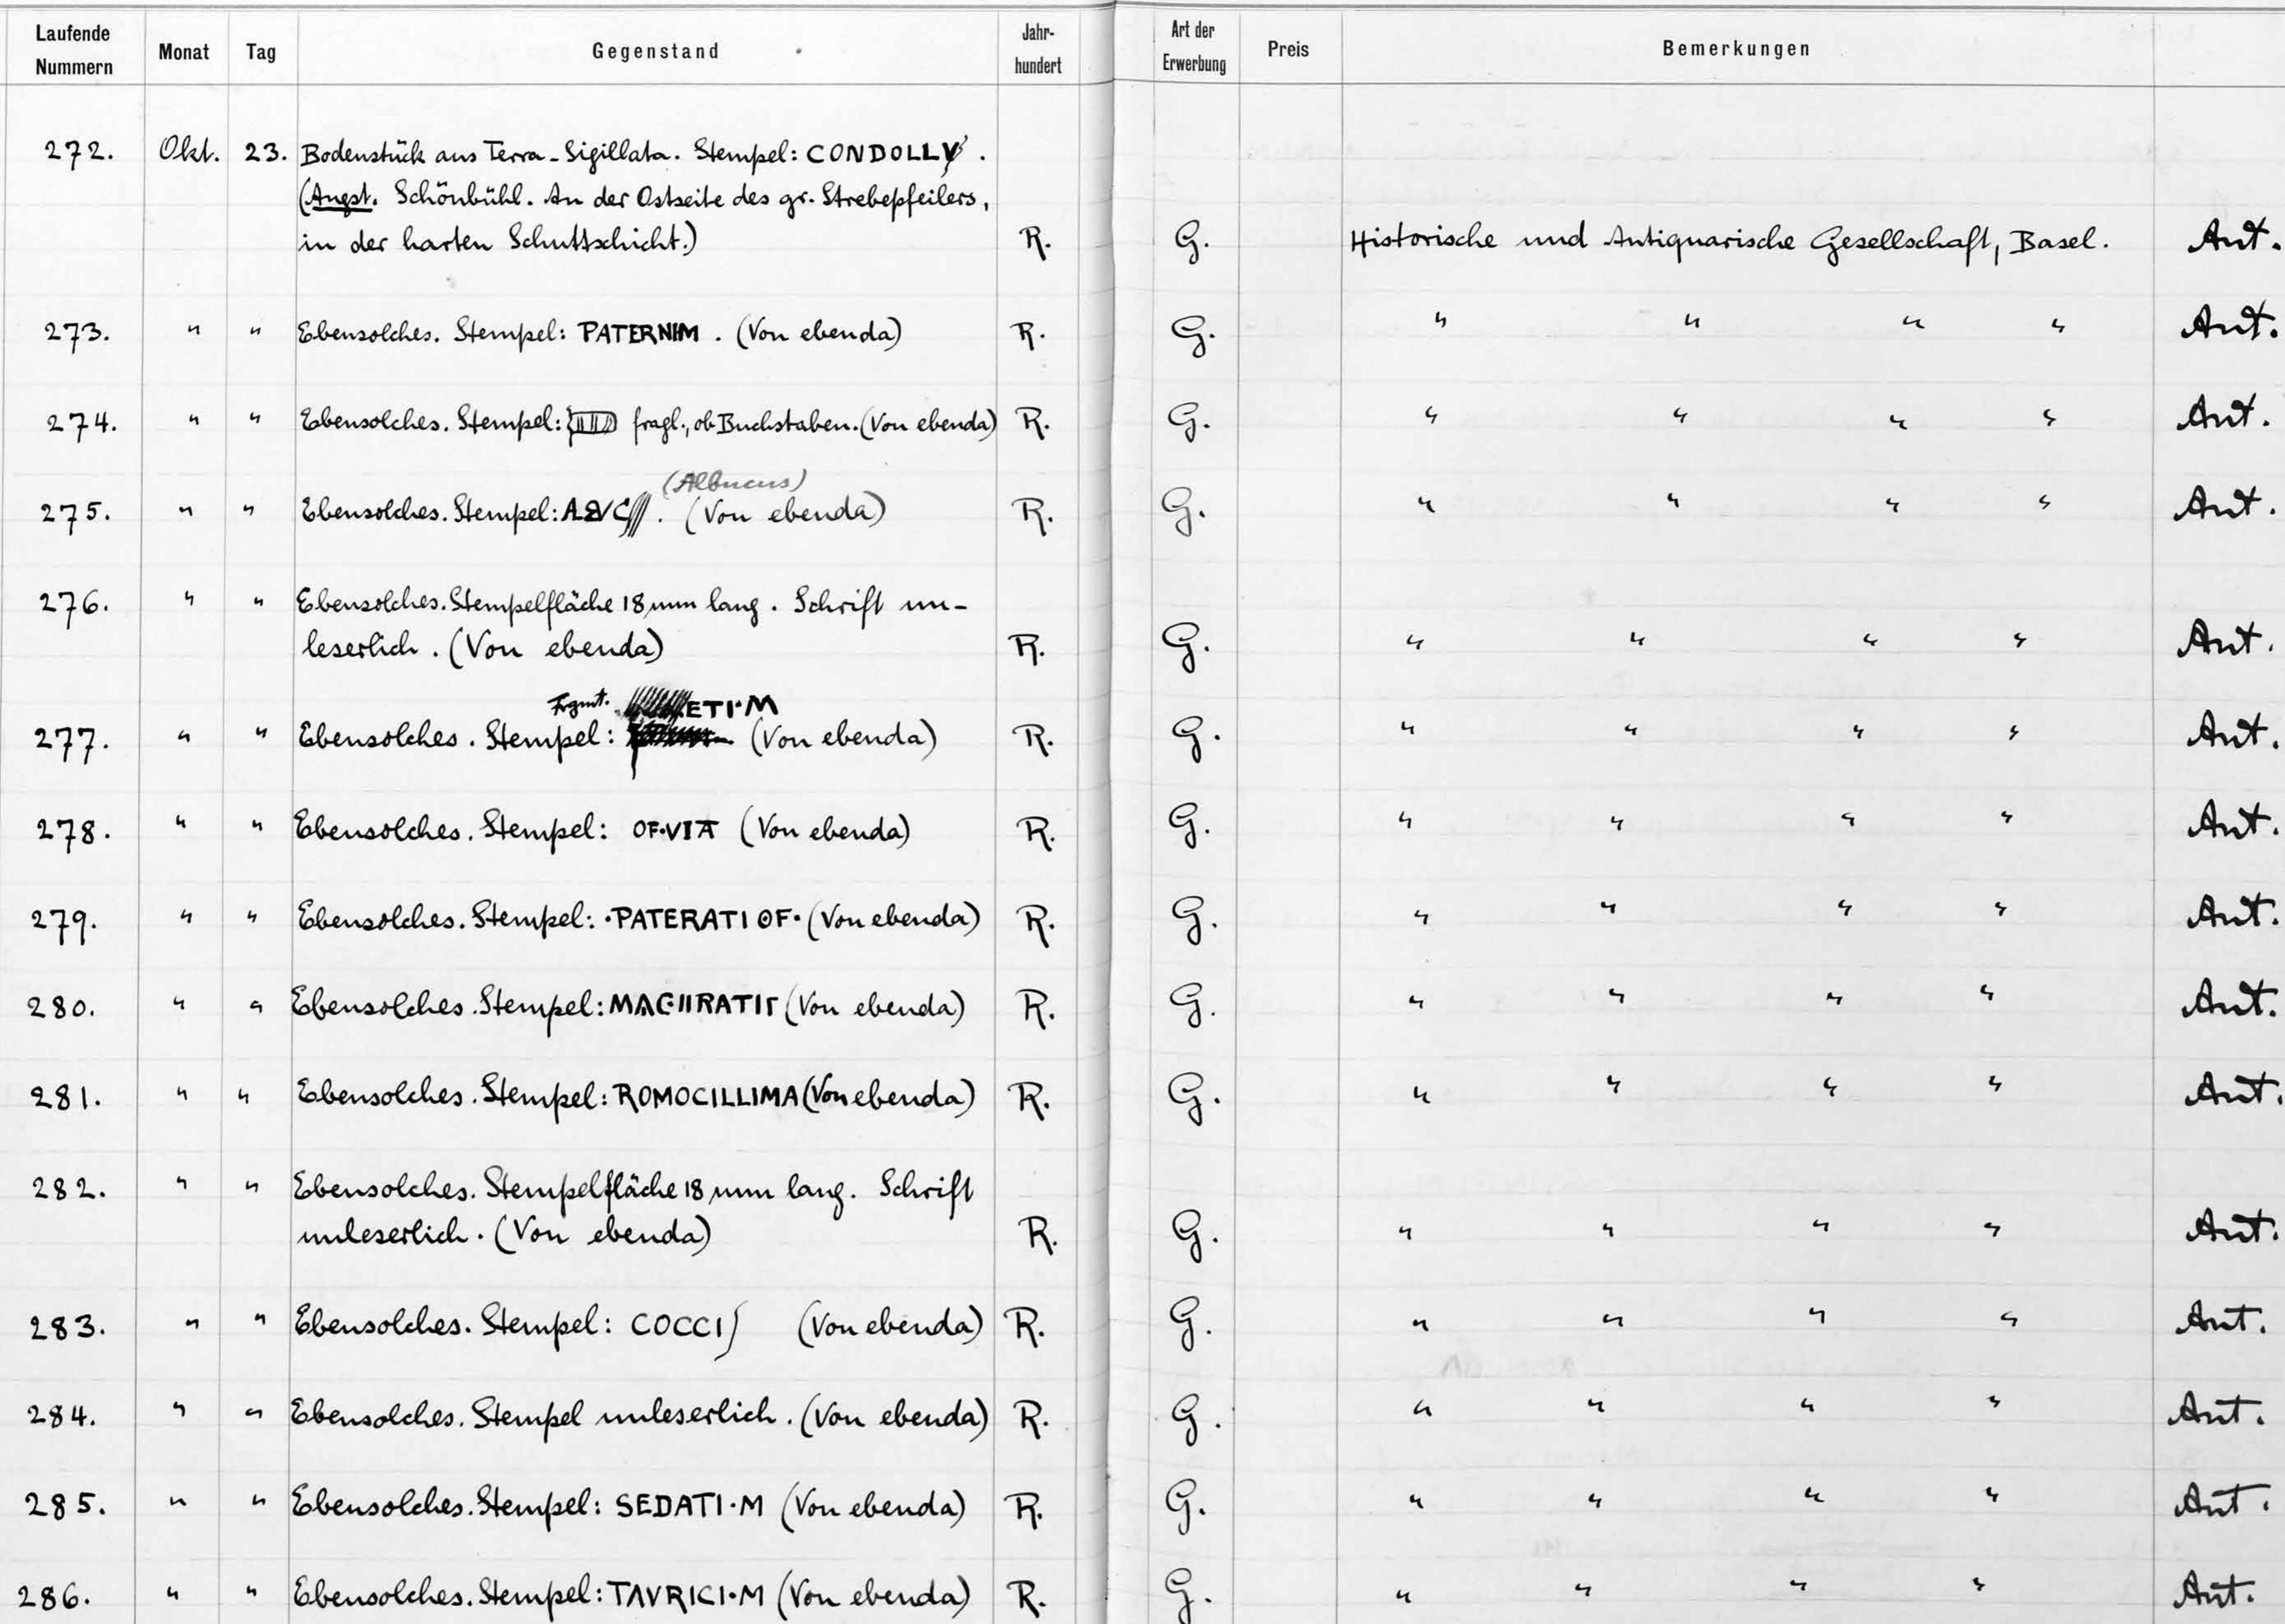 Laufende Nummern Monat Tag Gegenstand Jahr-hundert Art der Erwerbung Preis Bemerkungen
272. Okt. 23. Bodenstück aus Terra-Sigillata. Stempel: CONDOLLV.
(Augst. Schönbühl. An der Ostseite des gr. Strebepfeilers,
in der harten Schuttschicht.) R. G. Historische und Antiquarische Gesellschaft, Basel. Ant.
273. " " Ebensolches. Stempel: PATERNIM. (Von ebenda) R. G. " " " " Ant.
274. " " Ebensolches. Stempel: fragl., ob Buchstaben. (Von ebenda) R. G. " " " " Ant.
(Albucus)
275. " " Ebensolches. Stempel: (Von ebenda) R. G. " " " " Ant.
276. " " Ebensolches. Stempelfläche 18 mm lang. Schrift un-
leserlich. (Von ebenda) R. G. " " " " Ant.
Frgmt. ETI·M
277. " " Ebensolches. Stempel: (Von ebenda) R. G. " " " " Ant.
278. " " Ebensolches. Stempel: OF·VIA (Von ebenda) R. G. " " " " Ant.
279. " " Ebensolches. Stempel: ·PATERATI OF· (Von ebenda) R. G. " " " " Ant.
280. " " Ebensolches. Stempel: (Von ebenda) R. G. " " " " Ant.
281. " " Ebensolches. Stempel: ROMOCILLIMA (Von ebenda) R. G. " " " " Ant.
282. " " Ebensolches. Stempelfläche 18 mm lang. Schrift
unleserlich. (Von ebenda) R. G. " " " " Ant.
283. " " Ebensolches. Stempel: COCCI (Von ebenda) R. G. " " " " Ant.
284. " " Ebensolches. Stempel unleserlich. (Von ebenda) R. G. " " " " Ant.
285. " " Ebensolches. Stempel: SEDATI·M (Von ebenda) R. G. " " " " Ant.
286. " " Ebensolches. Stempel: TAVRICI·M (Von ebenda) R. G. " " " " Ant.